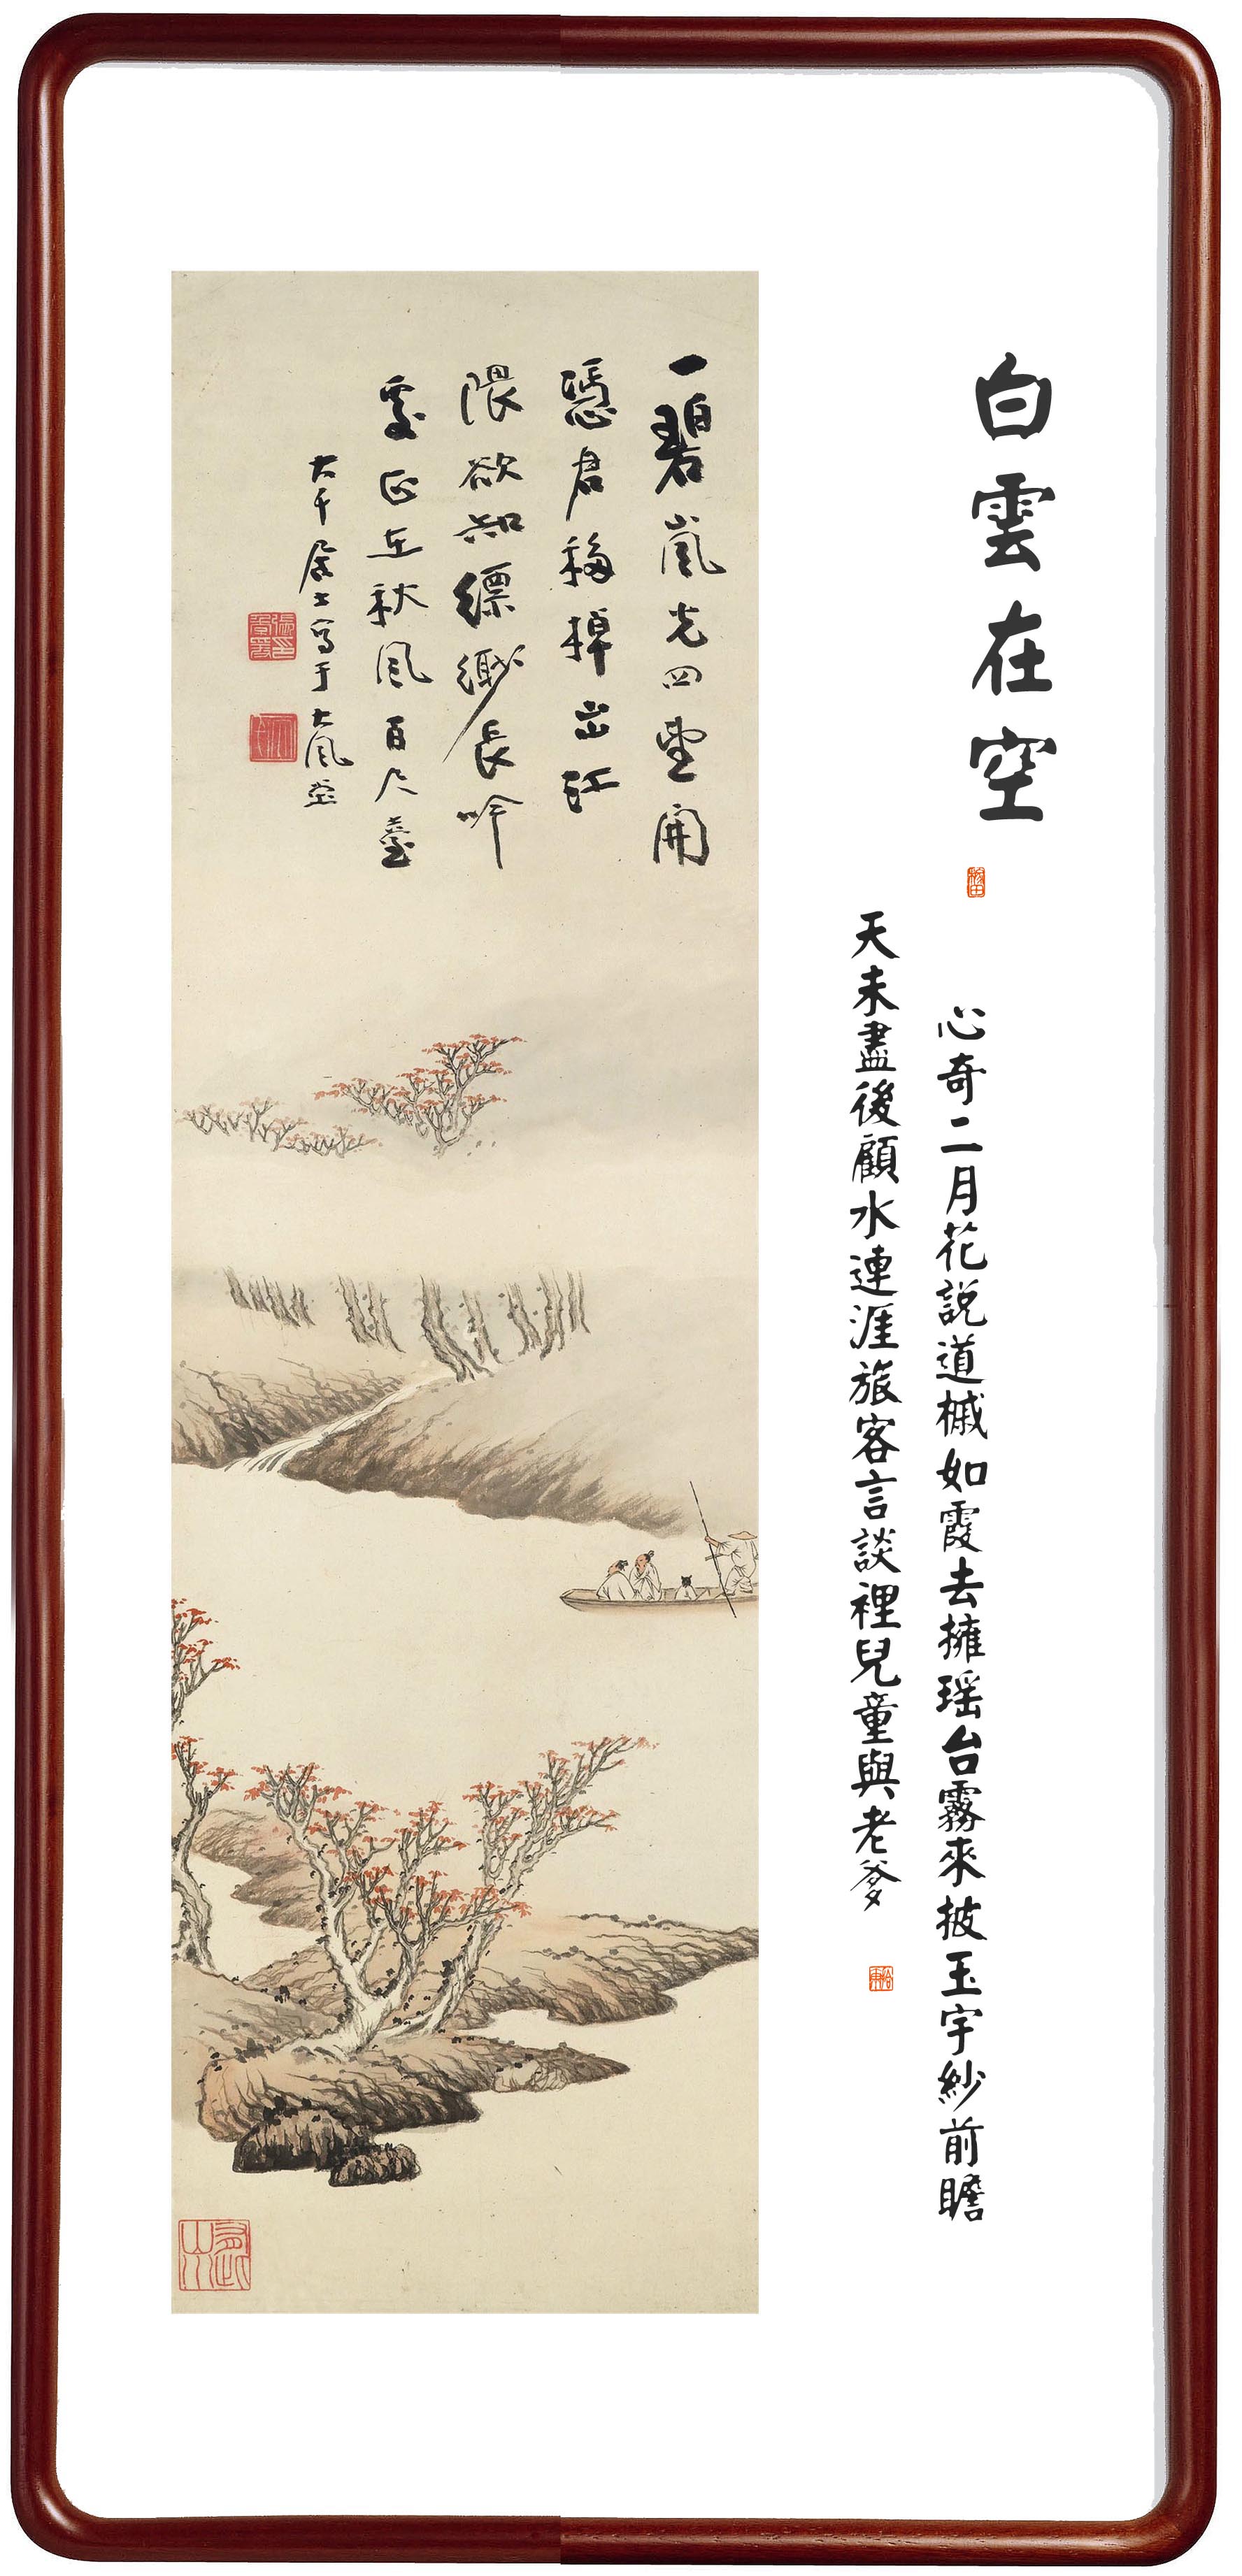 白雲在空
心奇二月花説道槭如霞去擁瑶台霧來披玉宇紗前瞻
天未盡後顧水連涯旅客言談裡兒童與老爹
一碧嵐光四望開
憑君移棹出江
隈欲知縹緲長吟
處正在秋風百尺臺
大千居士寫于大風堂